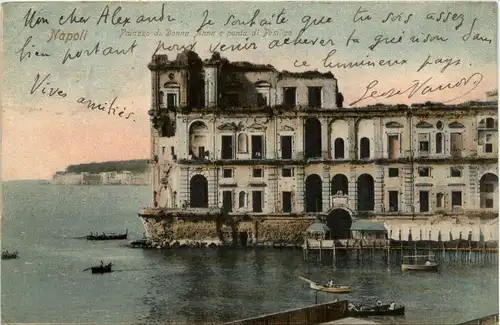 Mon cher Alexandre Je souhaite que tu sois assez
Napoli
Palazzo di Donna Anna e punta di Posilipo
bien portant pour venir achever ta guérison dans
ce lumineux pays.
Vives amitiés.